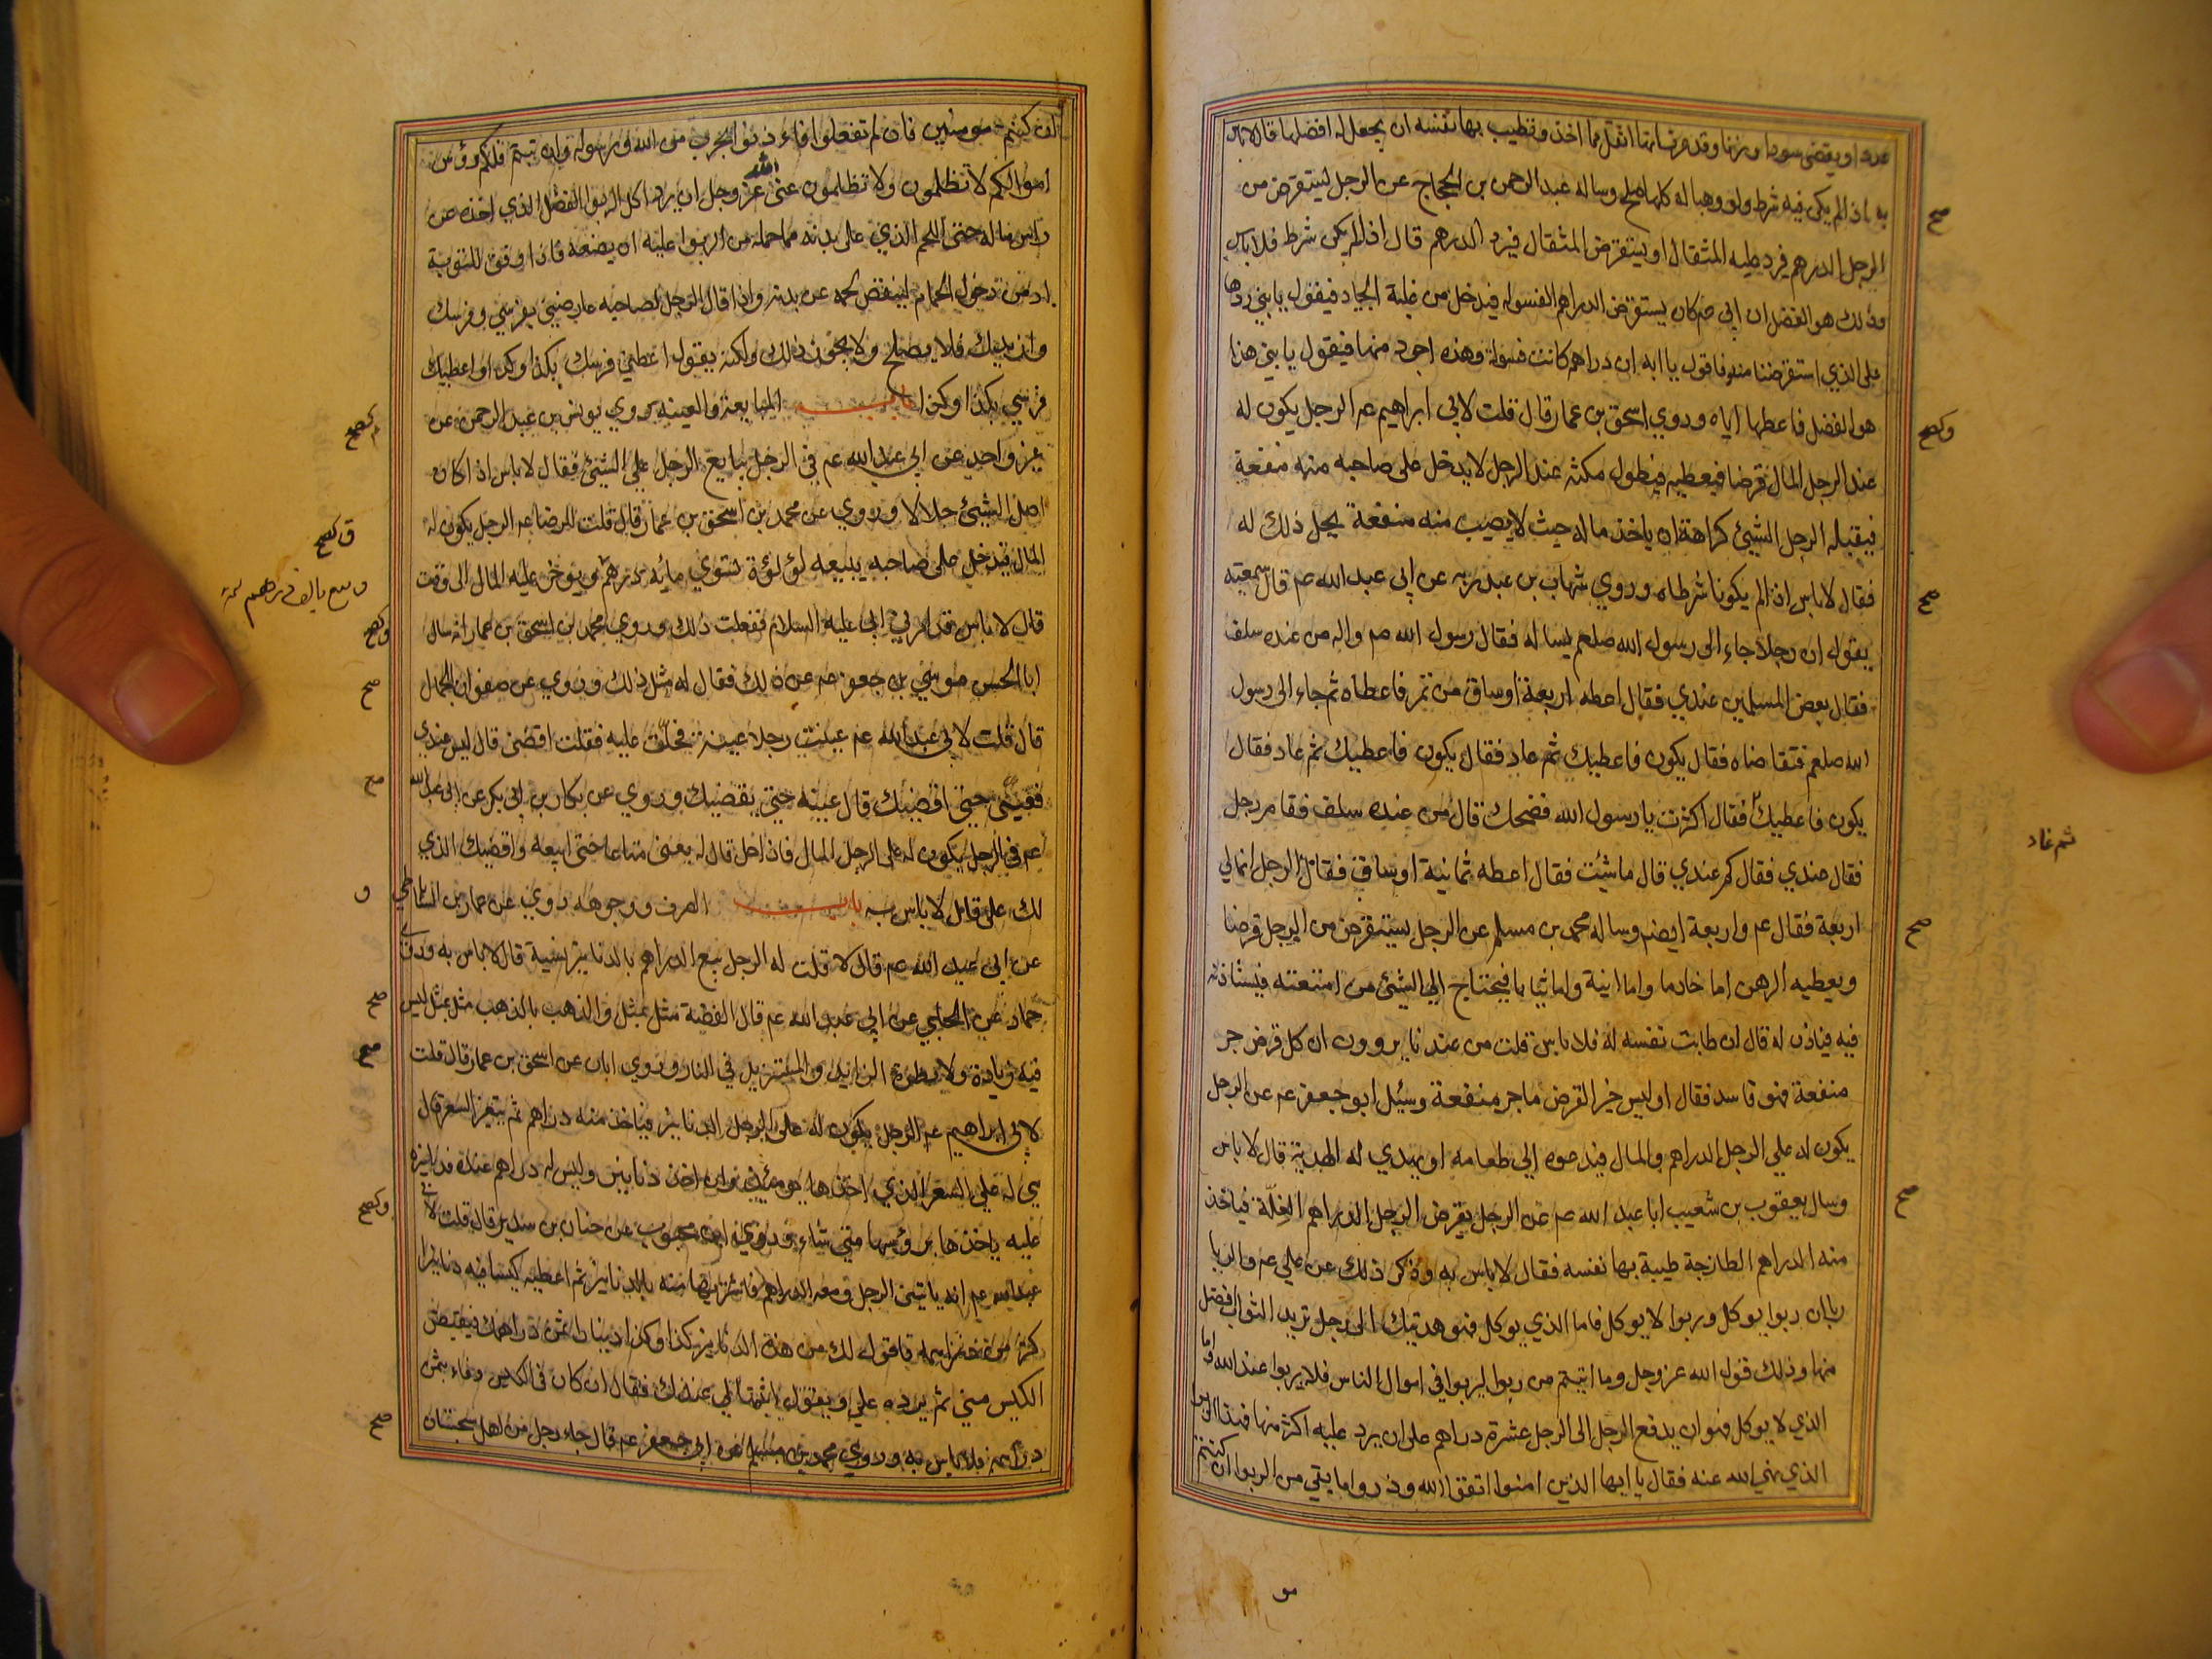 عددا ويقضى سودا وزنا وقد عرف انها اثقل مما اخذ وتطيب بها نفسه ان يجعل له افضلها قال لا باس
به اذا لم يكن فيه شرط ولو وهبها له كلها صلح وساله عبد الرحمن بن الحجاج عن الرجل يستقرض من
الرجل الدرهم فيرد عليه المثقال او يستقرض المثقال فيرد الدرهم قال اذا لم يكن شرط فلا باس
وذلك هو الفضل ان ابي عم كان يستقرض الدراهم الفسوله فيدخل من غلبة الجياد فيقول يا بني ردها
على الذي استقرضنا منه فاقول يا ابه ان دراهمه كانت فسولة وهذه اجود منها فيقول يا بني هذا
هو الفضل فاعطها اياه وروي اسحق بن عمار قال قلت لابي ابراهيم عم الرجل يكون له
عند الرجل المال قرضا فيعطيه فيطول مكثه عند الرجل لا يدخل على صاحبه منه منفعة
فيقبله الرجل الشيئ كراهة ان ياخذ ماله حيث لا يصيب منه منفعة يحل ذلك له
فقال لا باس اذا لم يكونا شرطاه وروي شهاب بن عبد ربه عن ابي عبد الله عم قال سمعته
يقول ان رجلا جاء الى رسول الله صلعم يساله فقال رسول الله صم واله من عنده سلف
فقال بعض المسلمين عندي فقال اعطه اربعة اوساق من تمر فاعطاه ثم جاء الى رسول
الله صلعم فتقاضاه فقال يكون فاعطيك ثم عاد فقال يكون فاعطيك ثم عاد فقال
يكون فاعطيك فقال اكثرت يا رسول الله فضحك قال من عنده سلف فقام رجل
ثم عاد
فقال عندي فقال كم عندي قال ما شئت فقال اعطه ثمانية اوساق فقال الرجل انما لي
اربعة فقال عم واربعة ايضم وساله محمد بن مسلم عن الرجل يستقرض من الرجل قرضا
ويعطيه الرهن اما خادما واما انية واما ثيابا فيحتاج الى الشيئ من امتعته فيستاذنه
فيه فياذن له قال ان طابت نفسه له فلا باس قلت من عندنا يروون ان كل قرض جر
منفعة فهو فاسد فقال اوليس خير القرض ما جر منفعة وسئل ابو جعفر عم عن الرجل
يكون له على الرجل الدراهم والمال فيدعوه الى طعامه او يهدي له الهدية قال لا باس
وسال يعقوب بن شعيب ابا عبد الله عم عن الرجل يقرض الرجل الدراهم الغلة فياخذ
منه الدراهم الطازجة طيبة بها نفسه فقال لا باس به وذكر ذلك عن علي عم والربا
ربا ان ربوا يوكل وربوا لا يوكل فاما الذي يوكل فهو هديتك الى رجل تريد الثواب افضل
منها وذلك قول الله عز وجل وما اتيتم من ربوا ليربوا في اموال الناس فلا يربوا عند الله واما
الذي لا يوكل فهو ان يدفع الرجل الى الرجل عشرة دراهم على ان يرد عليه اكثر منها فهذا الربوا
الذي نهى الله عنه فقال يا ايها الذين امنوا اتقوا الله وذروا ما بقي من الربوا ان كنتم
ان كنتم مومنين فان لم تفعلوا فاءذنوا بحرب من الله ورسوله وان تبتم فلكم رؤس
اموالكم لا تظلمون ولا تظلمون عنى الله عز وجل ان يرد اكل الربوا الفضل الذي اخذه عن
راس ماله حتى اللحم الذي على بدنه مما حمله من الربوا عليه ان يضعه فاذا وفق للتوبة
ادمن دخول الحمام لينقص لحمه عن بدنه واذا قال الرجل لصاحبه عاوضني بفرسي وفرسك
وازيدك فلا يصلح ولا يجوز ذلك ولكنه يقول اعطني فرسك بكذا وكذا او اعطيك
فرسي بكذا وكذا باب المبايعة والعينه روي يونس بن عبد الرحمن عن
غير واحد عن ابي عبد الله عم في الرجل يبايع الرجل على الشيئ فقال لا باس اذا كان
اصل الشيئ حلالا وروي عن محمد بن اسحق بن عمار قال قلت للرضا عم الرجل يكون له
المال فيدخل على صاحبه يبيعه لؤلؤة تسوي مائه درهم ويوخر عليه المال الى وقت
قال لا باس قد امرني ابي عليه السلام ففعلت ذلك وروي محمد بن اسحق بن عمار انه سال
ابا الحسن موسي بن جعفر عم عن ذلك فقال له مثل ذلك وروي عن صفوان الجمال
قال قلت لابي عبد الله عم عينت رجلا عينة فحلت عليه فقلت اقضني قال ليس عندي
فعيني حتى اقضيك قال عينه حتى يقضيك وروي عن بكار بن ابي بكر عن ابي عبد الله
عم في الرجل يكون له على الرجل المال فاذا حل قال له بعنى متاعا حتى ابيعه واقضيك الذي
لك على قال لا باس به باب الصرف ووجوهه روي عن عمار بن الساباطي
عن ابي عبد الله عم قال لا قلت له الرجل يبيع الدراهم بالدنانير نسية قال لا باس به وروى
حماد عن الحلبي عن ابي عبد الله عم قال الفضة مثل بمثل والذهب بالذهب مثل بمثل ليس
فيه زيادة ولا نظرة الزايد والمستزيد في النار وروي ابان عن اسحق بن عمار قال قلت
لابي ابراهيم عم الرجل يكون له على الرجل الدنانير فياخذ منه دراهم ثم يتغير السعر قال
هي له على السعر الذي اخذها يومئذ وان اخذ دنانير وليس له دراهم عنده فدنانيره
عليه ياخذها برؤسها متى شاء وروي ابن محبوب عن حنان بن سدير قال قلت لابي
عبد الله عم انه ياتيني الرجل ومعه الدراهم فاشتريها منه بالدنانير ثم اعطيه كيسا فيه دنانير
اكثر من دراهمه فاقول لك من هذه الدنانير كذا وكذا دينارا ثمن دراهمك فيقبض
الكيس مني ثم يرده علي ويقول اثبتها لي عندك فقال ان كان في الكيس وفاء بثمن
دراهمه فلا باس به وروي محمد بن مسلم عن ابي جعفر عم قال جاء رجل من اهل سجستان